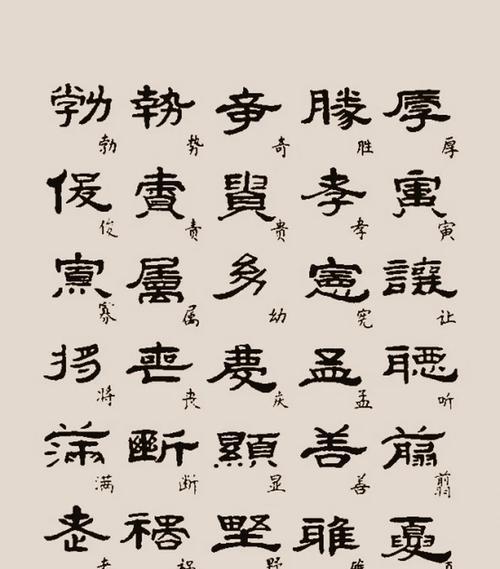 勃 勢 奇 勝 厚
勃 势 奇 胜 厚
俊 責 貴 孝 寅
俊 责 贵 孝 寅
寡 屬 幼 憲 讓
寡 属 幼 宪 让
將 喪 慶 孟 聽
将 丧 庆 孟 听
滿 斷 顯 善 翦
满 断 显 善 翦
老 野 夏